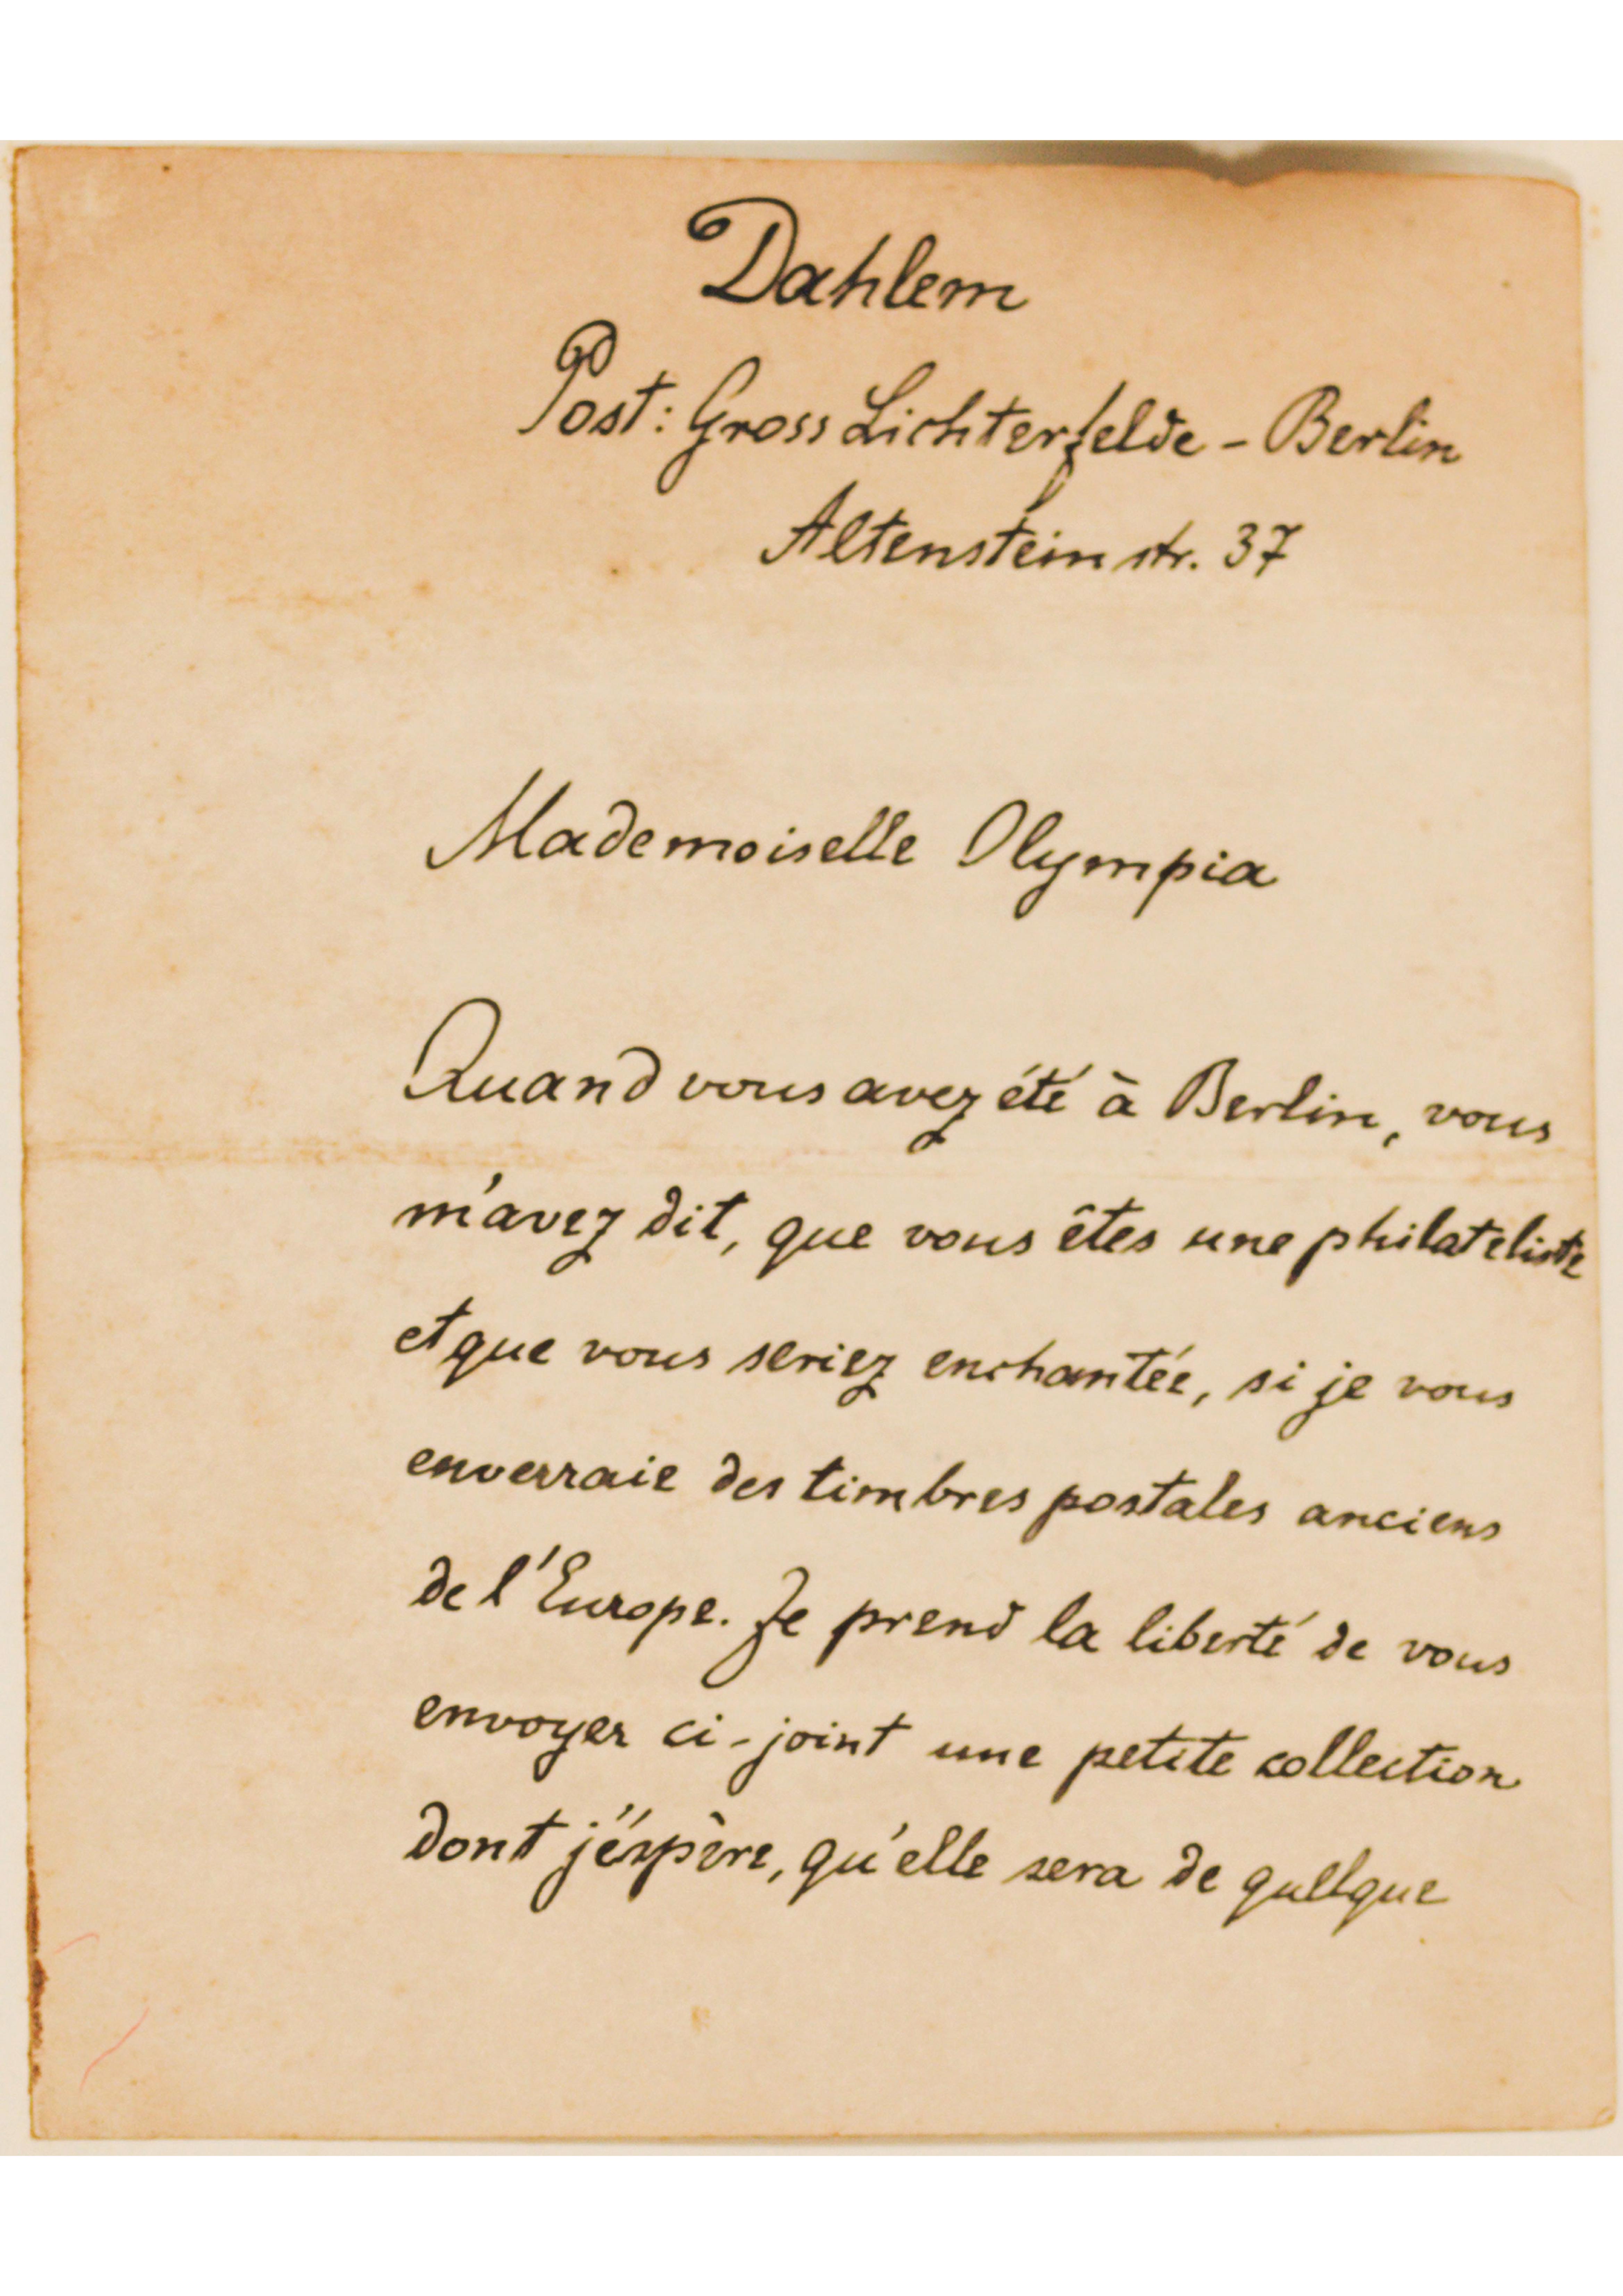 Dahlem
Post: Gross Lichterfelde - Berlin
Altensteinstr. 37
Mademoiselle Olympia
Quand vous avez été à Berlin, vous
m'avez dit, que vous êtes une philateliste
et que vous seriez enchantée, si je vous
enverraie des timbres postales anciens
de l'Europe. Je prend la liberté de vous
envoyer ci-joint une petite collection
dont j'éspère, qu'elle sera de quelque